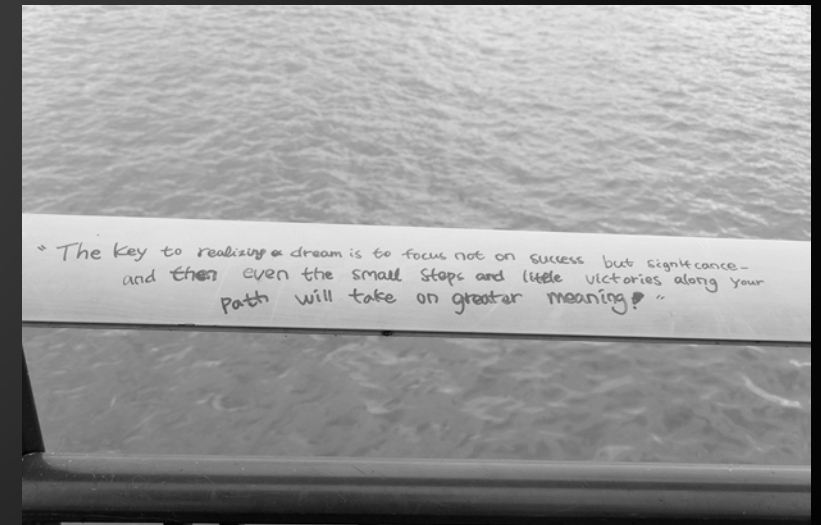 "The key to realizing a dream is to focus not on success but significance-
and then even the small steps and little victories along your
path will take on greater meaning."